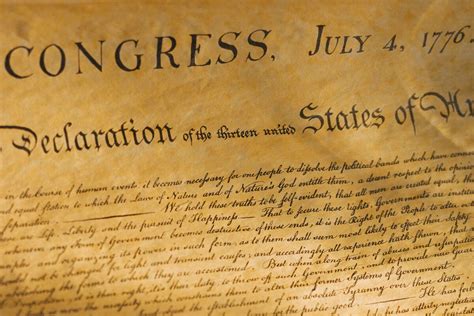 CONGRESS, JULY 4, 1776.
Declaration of the thirteen united States of
in the Course of human events, it becomes necessary for one people to dissolve the political bands which have
and equal station to which the Laws of Nature and of Nature's God entitle them, a decent respect to the opinions
separation. We hold these truths to be self-evident, that all men are created equal, that
Life, Liberty and the pursuit of Happiness — That to secure these rights, Governments are
Form of Government becomes destructive of these ends, it is the Right of the People to alter
organizing its powers in such form, as to them shall seem most likely to effect their Safety
changed for light and transient causes; and accordingly all experience hath shewn, that
abolishing the forms to which they are accustomed. But when a long train of abuses and
it is their right, it is their duty, to throw off such Government, and to provide new
which constrains them to alter their former Systems of Government.
establishment of an absolute Tyranny over these States.
for the public good.